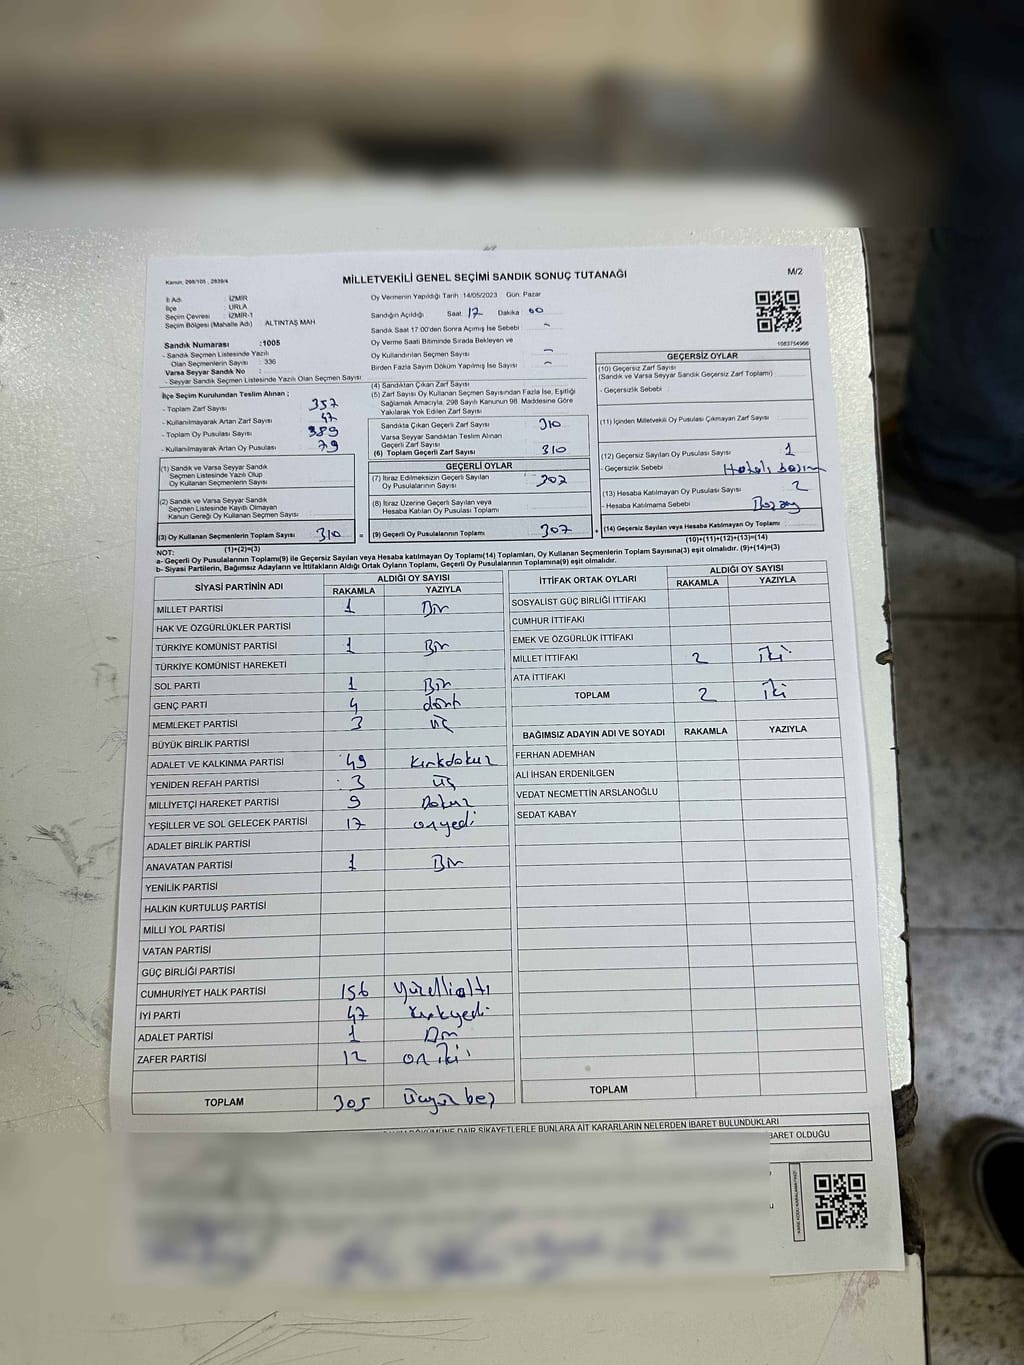 Kanun, 298/105 , 2839/4
MİLLETVEKİLİ GENEL SEÇİMİ SANDIK SONUÇ TUTANAĞI
M/2
İl Adı : İZMİR
İlçe : URLA
Seçim Çevresi : İZMİR-1
Seçim Bölgesi (Mahalle Adı) : ALTINTAŞ MAH.
Sandık Numarası :1005
- Sandık Seçmen Listesinde Yazılı
Olan Seçmenlerin Sayısı : 336
Varsa Seyyar Sandık No :
- Seyyar Sandık Seçmen Listesinde Yazılı Olan Seçmen Sayısı :
İlçe Seçim Kurulundan Teslim Alınan ;
- Toplam Zarf Sayısı 357
- Kullanılmayarak Artan Zarf Sayısı 47
- Toplam Oy Pusulası Sayısı 389
- Kullanılmayarak Artan Oy Pusulası 79
(1) Sandık ve Varsa Seyyar Sandık
Seçmen Listesinde Yazılı Olup
Oy Kullanan Seçmenlerin Sayısı
(2) Sandık ve Varsa Seyyar Sandık
Seçmen Listesinde Kayıtlı Olmayan
Kanun Gereği Oy Kullanan Seçmen Sayısı
(3) Oy Kullanan Seçmenlerin Toplam Sayısı 310
(1)+(2)=(3)
Oy Vermenin Yapıldığı Tarih :14/05/2023 Gün: Pazar
Sandığın Açıldığı Saat 17 Dakika 00
Sandık Saat 17:00'den Sonra Açılmış İse Sebebi -
Oy Verme Saati Bitiminde Sırada Bekleyen ve
Oy Kullandırılan Seçmen Sayısı -
Birden Fazla Sayım Döküm Yapılmış İse Sayısı -
(4) Sandıktan Çıkan Zarf Sayısı
(5) Zarf Sayısı Oy Kullanan Seçmen Sayısından Fazla İse, Eşitliği
Sağlamak Amacıyla, 298 Sayılı Kanunun 98. Maddesine Göre
Yakılarak Yok Edilen Zarf Sayısı
Sandıkta Çıkan Geçerli Zarf Sayısı 310
Varsa Seyyar Sandıktan Teslim Alınan
Geçerli Zarf Sayısı
(6) Toplam Geçerli Zarf Sayısı 310
GEÇERLİ OYLAR
(7) İtiraz Edilmeksizin Geçerli Sayılan
Oy Pusulalarının Sayısı 307
(8) İtiraz Üzerine Geçerli Sayılan veya
Hesaba Katılan Oy Pusulaları Toplamı
= (9) Geçerli Oy Pusulalarının Toplamı 307 +
1083754966
GEÇERSİZ OYLAR
(10) Geçersiz Zarf Sayısı
(Sandık ve Varsa Seyyar Sandık Geçersiz Zarf Toplamı)
- Geçersizlik Sebebi :
(11) İçinden Milletvekili Oy Pusulası Çıkmayan Zarf Sayısı
(12) Geçersiz Sayılan Oy Pusulası Sayısı 1
- Geçersizlik Sebebi Hatalı basım
(13) Hesaba Katılmayan Oy Pusulası Sayısı 2
- Hesaba Katılmama Sebebi
(14) Geçersiz Sayılan veya Hesaba Katılmayan Oy Toplamı
(10)+(11)+(12)+(13)=(14)
NOT:
a- Geçerli Oy Pusulalarının Toplamı(9) ile Geçersiz Sayılan veya Hesaba katılmayan Oy Toplamı(14) Toplamları, Oy Kullanan Seçmenlerin Toplam Sayısına(3) eşit olmalıdır. (9)+(14)=(3)
b- Siyasi Partilerin, Bağımsız Adayların ve İttifakların Aldığı Ortak Oyların Toplamı, Geçerli Oy Pusulalarının Toplamına(9) eşit olmalıdır.
SİYASİ PARTİNİN ADI
ALDIĞI OY SAYISI
RAKAMLA YAZIYLA
MİLLET PARTİSİ 1 Bir
HAK VE ÖZGÜRLÜKLER PARTİSİ
TÜRKİYE KOMÜNİST PARTİSİ 1 Bir
TÜRKİYE KOMÜNİST HAREKETİ
SOL PARTİ 1 Bir
GENÇ PARTİ 4 dört
MEMLEKET PARTİSİ 3 üç
BÜYÜK BİRLİK PARTİSİ
ADALET VE KALKINMA PARTİSİ 49 kırkdokuz
YENİDEN REFAH PARTİSİ 3 üç
MİLLİYETÇİ HAREKET PARTİSİ 9 Dokuz
YEŞİLLER VE SOL GELECEK PARTİSİ 17 onyedi
ADALET BİRLİK PARTİSİ
ANAVATAN PARTİSİ 1 Bir
YENİLİK PARTİSİ
HALKIN KURTULUŞ PARTİSİ
MİLLİ YOL PARTİSİ
VATAN PARTİSİ
GÜÇ BİRLİĞİ PARTİSİ
CUMHURİYET HALK PARTİSİ 156 yüzellialtı
İYİ PARTİ 47 kırkyedi
ADALET PARTİSİ 1 Bir
ZAFER PARTİSİ 12 on iki
TOPLAM 305 üçyüz beş
İTTİFAK ORTAK OYLARI
ALDIĞI OY SAYISI
RAKAMLA YAZIYLA
SOSYALİST GÜÇ BİRLİĞİ İTTİFAKI
CUMHUR İTTİFAKI
EMEK VE ÖZGÜRLÜK İTTİFAKI
MİLLET İTTİFAKI 2 iki
ATA İTTİFAKI
TOPLAM 2 iki
BAĞIMSIZ ADAYIN ADI VE SOYADI RAKAMLA YAZIYLA
FERHAN ADEMHAN
ALİ İHSAN ERDENİLGEN
VEDAT NECMETTİN ARSLANOĞLU
SEDAT KABAY
TOPLAM
DÖKÜMÜNE DAİR ŞİKAYETLERLE BUNLARA AİT KARARLARIN NELERDEN İBARET BULUNDUKLARI
İBARET OLDUĞU